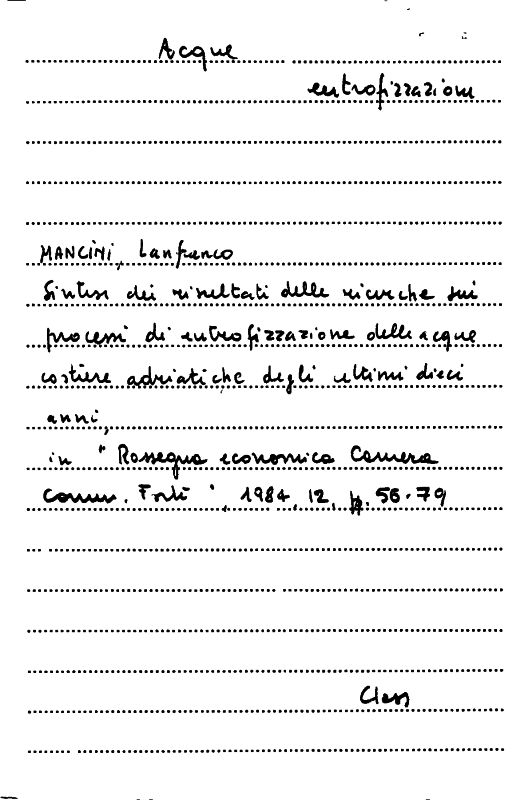 Acque
eutrofizzazione
MANCINI, Lanfranco
Sintesi dei risultati delle ricerche sui
processi di eutrofizzazione delle acque
costiere adriatiche degli ultimi dieci
anni,
in "Rassegna economica Camera
Comm. Forlì", 1984, 12, p. 56-79
Class